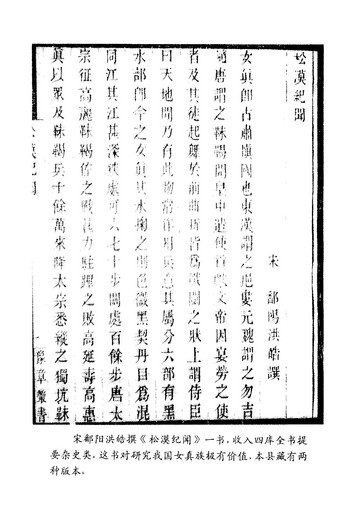 松漠紀聞
宋 鄱陽洪皓撰
女眞卽古肅愼國也東漢謂之挹婁元魏謂之勿吉
隋唐謂之靺鞨開皇中遣使貢獻文帝因宴勞之使
者及其徒起舞於前曲折皆爲戰鬭之狀上謂侍臣
曰天地間乃有此物常作用兵意其屬分六部有黑
水部卽今之女眞其水掬之則色微黑契丹目爲混
同江其江甚深狹處可六七十步闊處百餘步唐太
宗征高麗靺鞨佐之戰甚力駐蹕之敗高延壽高惠
眞以眾及靺鞨兵十餘萬來降太宗悉縱之獨坑靺
松漠紀聞
豫章叢書
宋鄱阳洪皓撰《松漠纪闻》一书，收入四库全书提
要杂史类。这书对研究我国女真族极有价值，本县藏有两
种版本。